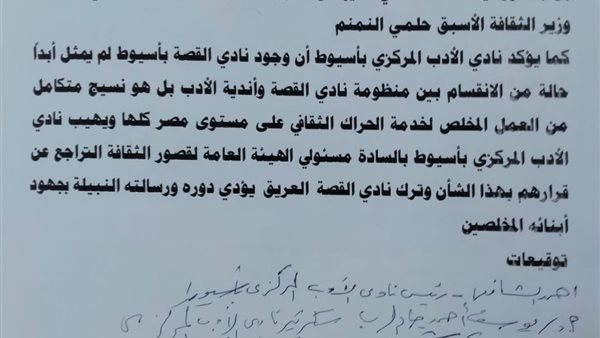 وزير الثقافة الأسبق حلمي النمنم
كما يؤكد نادي الأدب المركزي بأسيوط أن وجود نادي القصة بأسيوط لم يمثل أبداً
حالة من الانقسام بين منظومة نادي القصة وأندية الأدب بل هو نسيج متكامل
من العمل المخلص لخدمة الحراك الثقافي على مستوى مصر كلها ويهيب نادي
الأدب المركزي بأسيوط بالسادة مسئولي الهيئة العامة لقصور الثقافة التراجع عن
قرارهم بهذا الشأن وترك نادي القصة العريق يؤدي دوره ورسالته النبيلة بجهود
أبنائه المخلصين
توقيعات
احمد الشافعى - رئيس نادى الأدب المركزى بأسيوط
أحمد سكرتير نادى الأدب المركزى